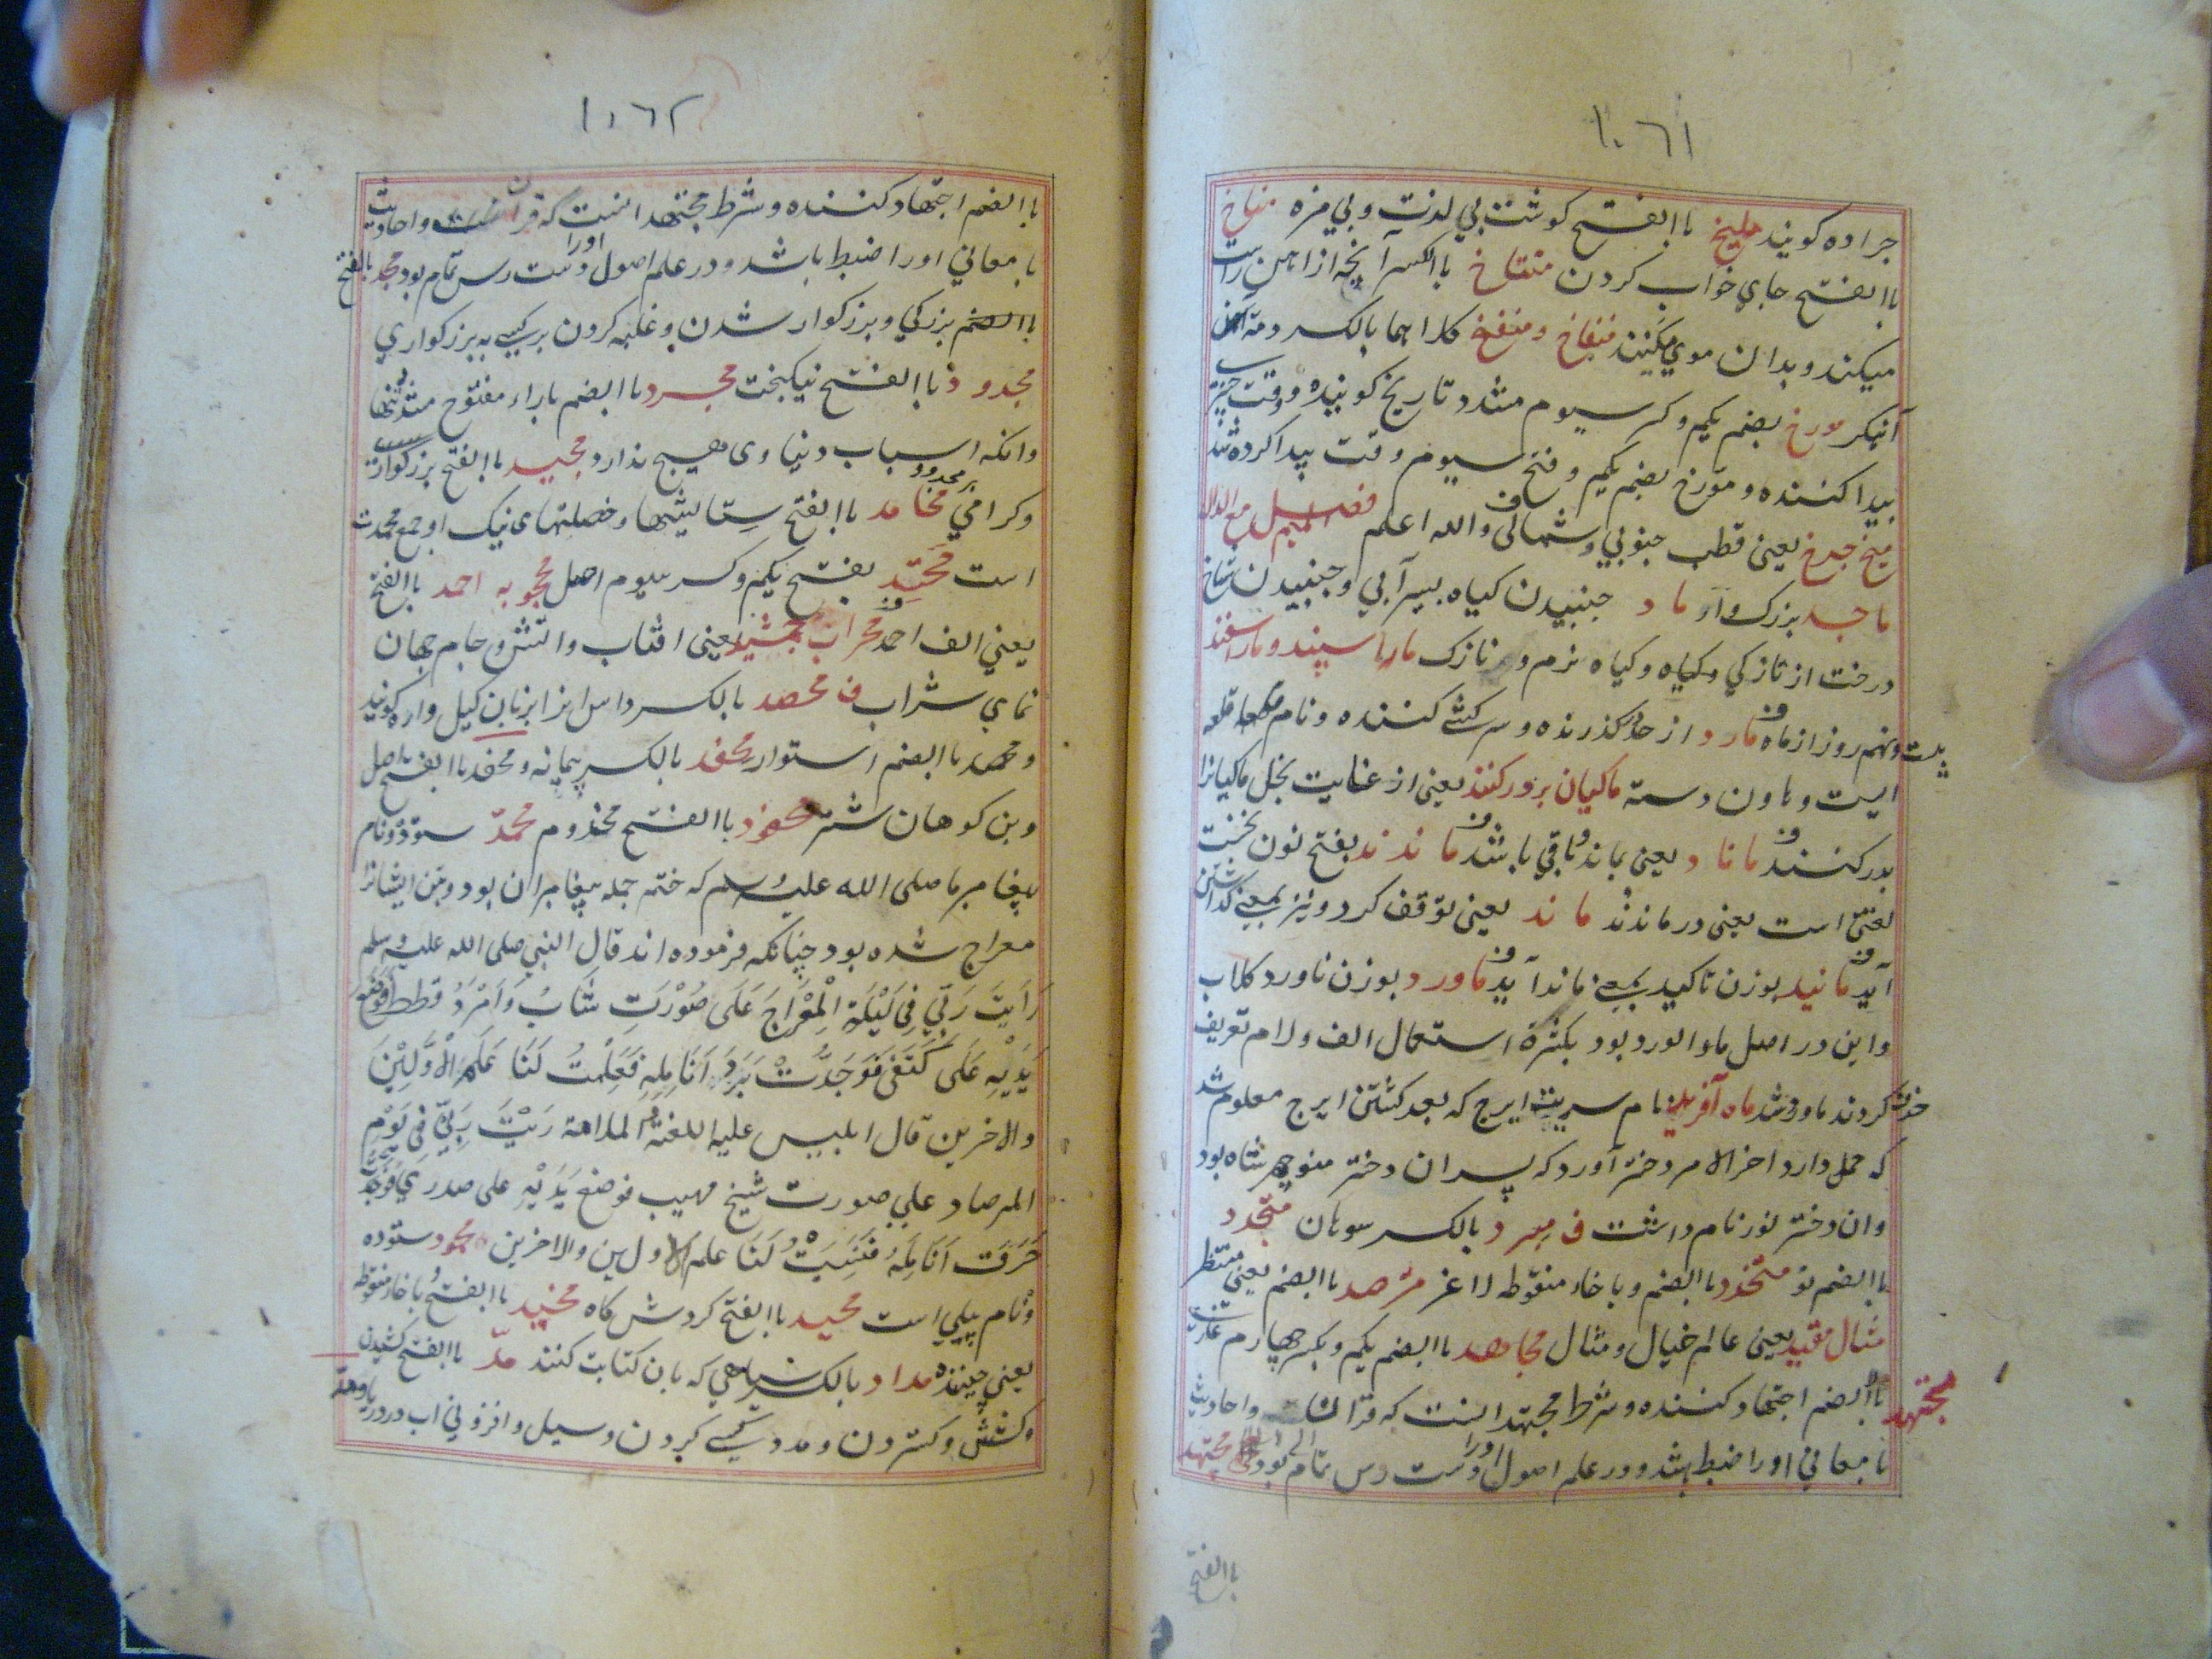 ١٠٦١
جراده كويند مليخ باالفتح كوشت بي لذت وبي مزه مناخ
باالفتح جاي خواب كردن منتاخ باالكسر آنچه از اهن راست
ميكند وبدان موي ميكنند منفاخ ومنفخ كلاهما بالكسر ومه آهن
آنپكر مورخ بضم يكم وكسر سيوم مشدد تاريخ كوينده ووقت چيز
پيدا كننده ومورخ بضم يكم وفتح سيوم وقت پيدا كرده شد
ميخ چرخ يعني قطب جنوبي وشمالي والله اعلم فصل الميم مع الدال
ماجد بزرك وار ماد جنبيدن كياه سيرآبي وجنبيدن شاخ
درخت از تازكي وكياه وكياه نرم ونازك ماراسپند وماراسفند
بيست ونهم روز از ماه ف مارد از حد كذرنده وسركشي كننده ونام قلعه
ايست وهاون دسته ماكيان بر در كنند يعني از غايت بخل ماكيانرا
بدر كنند ف ماناد يعني بماند وباقي باشد ف ماندند بفتح نون نخست
لغتي است يعني درماندند ماند يعني توقف كرد ونيز بمعني كذاشتن
آيد ف مانيد بوزن تاكيد بمعني ماند آيد ف ماورد بوزن ناورد كلاب
واين در اصل ماء الورد بود بكثرة استعمال الف ولام تعريف
حذف كردند ماورد شد ماه آفريد نام سريت ايرج كه بعد كشتن ايرج معلوم شد
كه حمل دارد اخر الامر دختر آورد كه پسر ان دختر منوچهر شاه بود
وان دختر لورنام داشت ف مبرد بالكسر سوهان متجدد
باالضم نو متخدد باالضم وبا خاء منقوطه لاغر مترصد باالضم يعني منتظر
مثال مقيد يعني عالم خيال ومثال مجاهد باالضم يكم وبكسر چهارم غازي
مجتهد باالضم اجتهاد كننده وشرط مجتهد انست كه قران واحاديث
با معاني او را ضبط باشد ودر علم اصول او را دست رس تمام بود مجتهد
باالفتح
١٠٦٢
باالضم اجتهاد كننده وشرط مجتهد انست كه قران واحاديث
با معاني او را ضبط باشد ودر علم اصول او را دست رس تمام بود مجد باالفتح
باالضم بزركي وبزركوار شدن وغلبه كردن بر كسي به بزركواري
مجدود باالفتح نيكبخت مجرد باالضم با راء مفتوح مشدد تنها
وانكه اسباب دنياوي هيچ ندارد مجيد باالفتح بزركوار
وكرامي محامد باالفتح ستايشها وخصلتهاي نيك او جمع محمدت
است محتد بفتح يكم وكسر سيوم اصل محجوبه احمد باالفتح
يعني الف احمد ف محراب جمشيد يعني افتاب واتش وجام جهان
نماي شراب ف محصد بالكسر داس انرا بزبان كيل واره كويند
ومحصد باالضم استوار محفد بالكسر پيمانه ومحفد باالفتح اصل
وبن كوهان شتر محفود باالفتح مخدوم محمد ستوده ونام
پيغامبر ما صلى الله عليه وسلم كه ختم جمله پيغامبران بود وبتن ايشانرا
معراج شده بود چنانكه فرموده اند قال النبي صلى الله عليه وسلم
رَاَيتَ رَبّي فِى لَيْلَةِ الْمِعْرَاجَ عَلَى صُوْرَتِ شَابُ وَاَمْرَدُ قطط فَوَضَعَ
يَدَيْهِ عَلَى كَتَفى فَوَجَدَّتْ بَرَدَ اَنَامِلِهِ فَعَلِمتُ لَنَا عَلَمَ الْاَوَّلِيْنَ
والاخرين قال ابليس عليه اللغنة الملامة رَيْتَ رَبِّيّ فى يَوْمِ
المرصاد علي صورت شيخ مهيب فوضع يَدَيْهِ على صدري فَوَجَدَّ
حَرَقَت اَنَامِلَهُ فَنَسِيَتْ لَنَا علم الاولين والاخرين محمود ستوده
ونام پيلي است محيد باالفتح كردش كاه مخيد باالفتح با خاء منقوطه
يعني چيننده مداد بالكسر سياهي كه بان كتابت كنند مدّ باالفتح كشيدن
وكشش وكستردن ومدد كسي كردن وسيل وافزوني اب در دريا